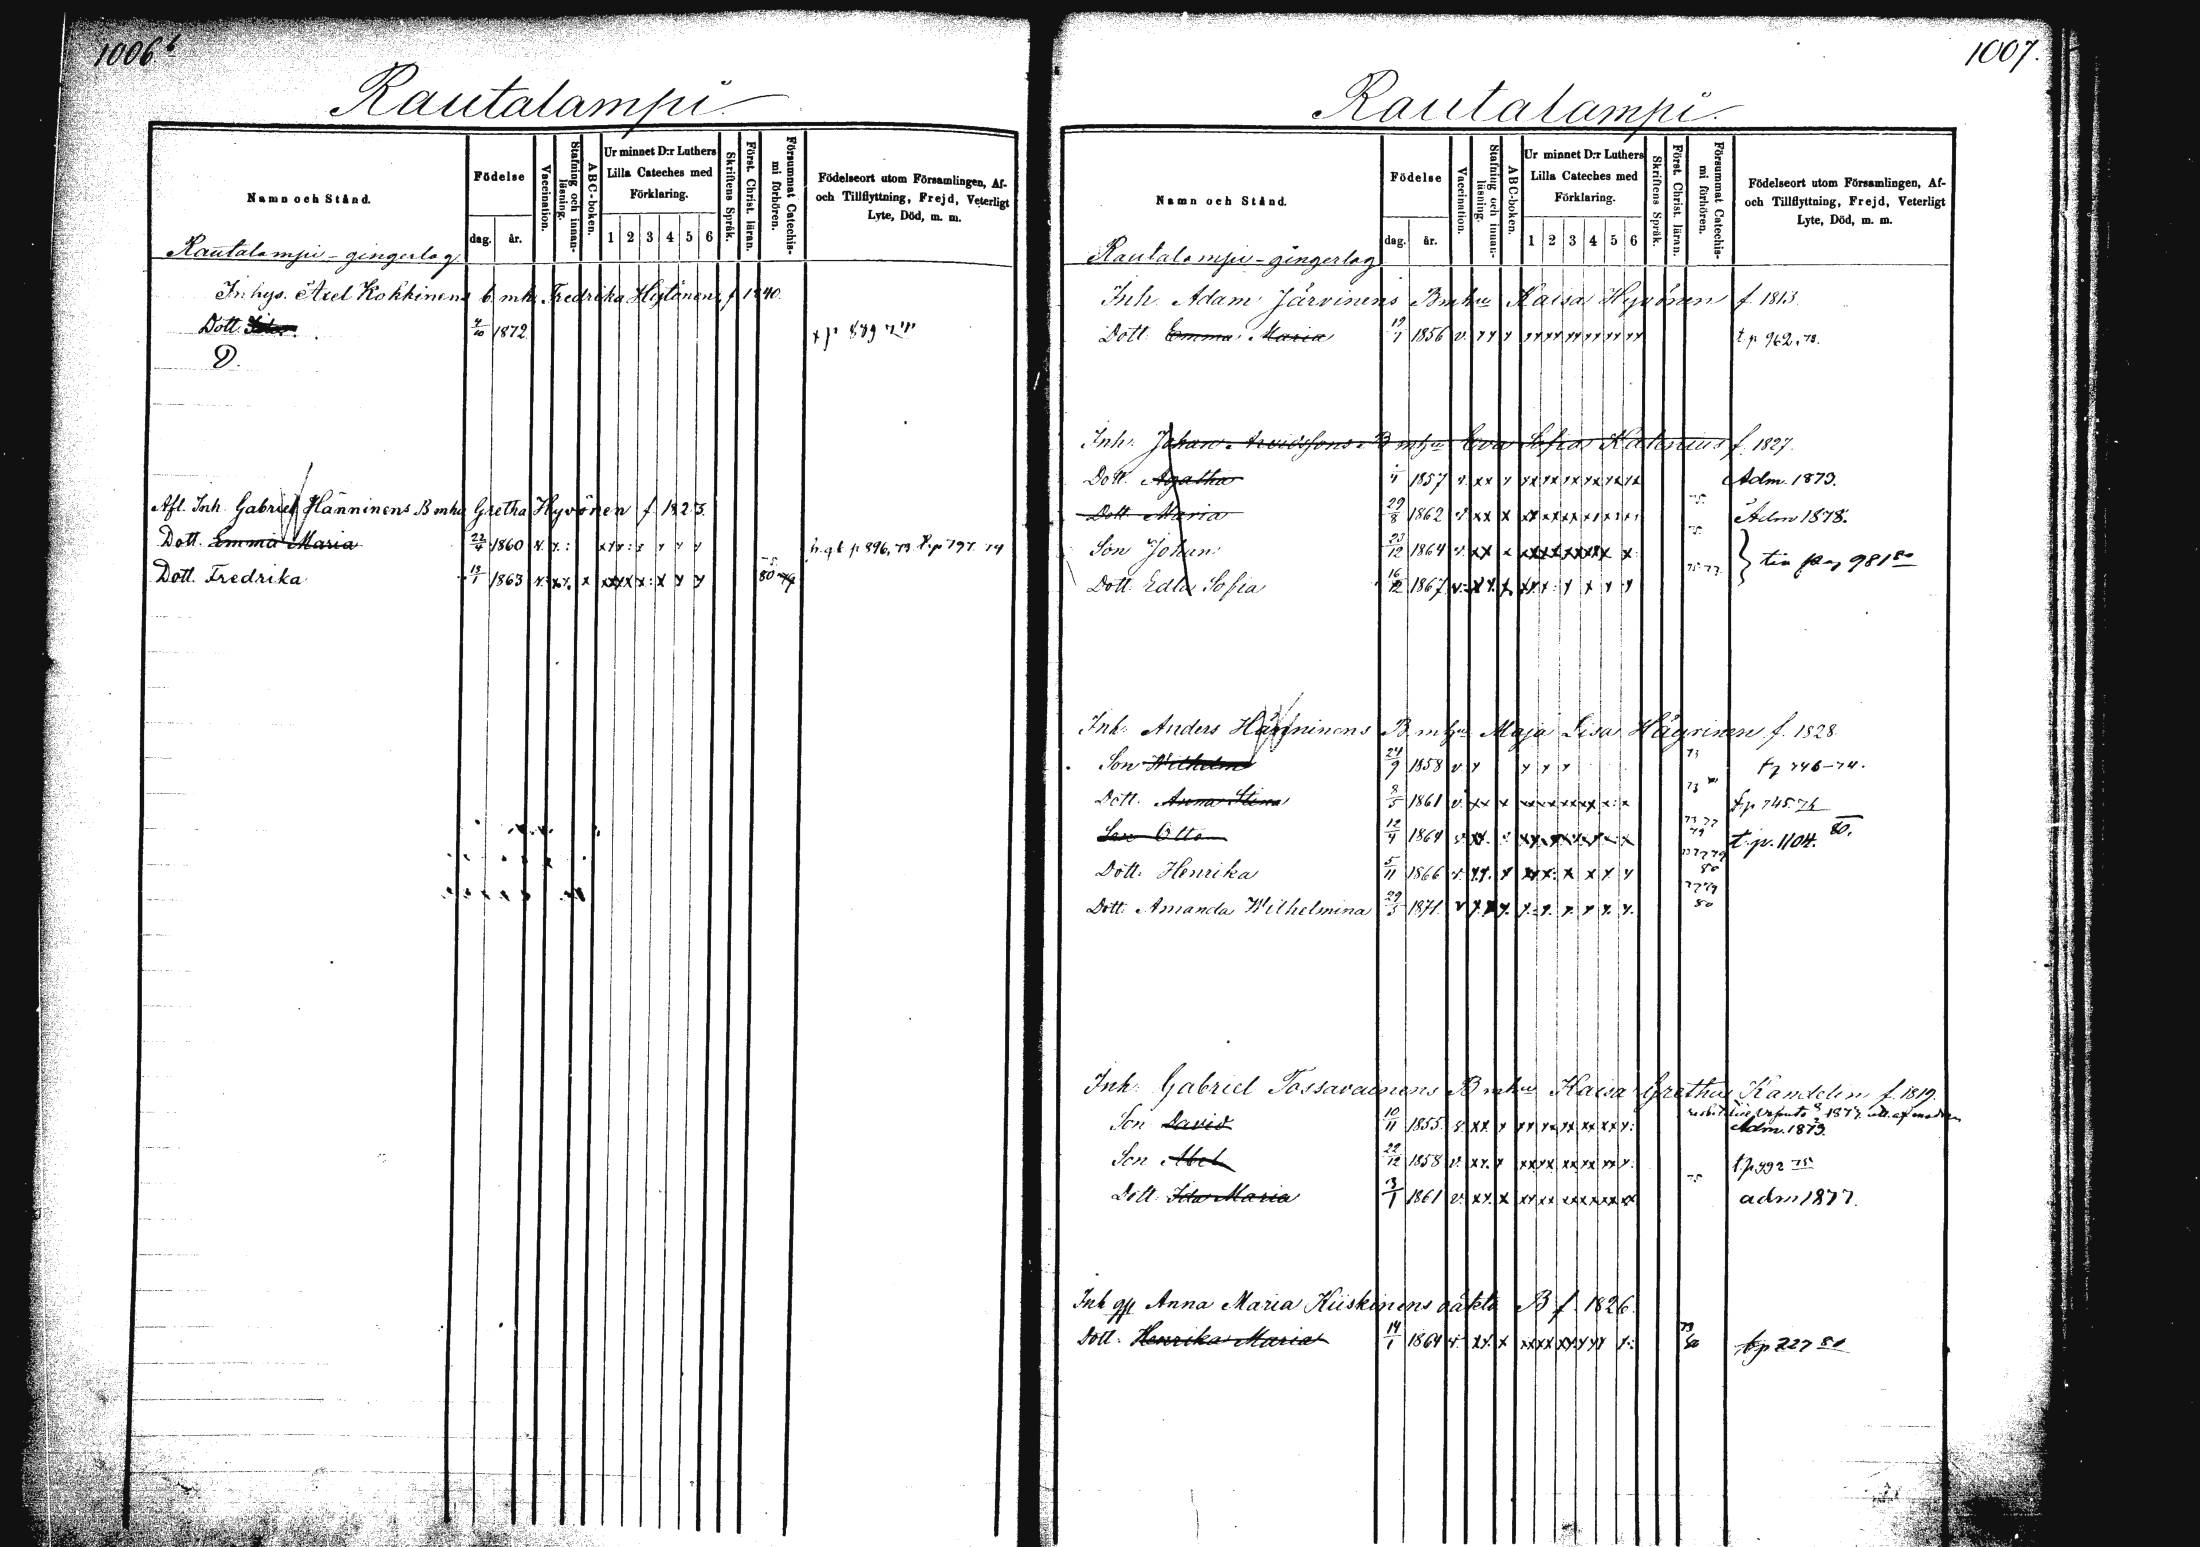 1006
Rautalampi
Namn och Stånd.
Födelse
dag. år.
Vaccination.
Stafning och innan-läsning.
ABC-boken.
Ur minnet D:r Luthers
Lilla Cateches med
Förklaring.
1 2 3 4 5 6
Skriftens Språk.
Först. Christ. läran.
Försummat Catechis-
mi förhören.
Födelseort utom Församlingen, Af-
och Tillflyttning, Frejd, Veterligt
Lyte, Död, m. m.
Rautalampi-gingerlag
Inhys. Axel Kokkinens b. mh. Fredrika Hytönen f 1840.
Dott. 1872
D.
Afl. Inh. Gabriel Hänninens B mhu Gretha Hyvönen f 1823.
Dott. Emma Maria 22/4 1860 p 896, 73 797 74
Dott. Fredrika 13/1 1863 80
1007.
Rautalampi.
Namn och Stånd.
Födelse
dag. år.
Vaccination.
Stafning och innan-läsning.
ABC-boken.
Ur minnet D:r Luthers
Lilla Cateches med
Förklaring.
1 2 3 4 5 6
Skriftens Språk.
Först. Christ. läran.
Försummat Catechis-
mi förhören.
Födelseort utom Församlingen, Af-
och Tillflyttning, Frejd, Veterligt
Lyte, Död, m. m.
Rautalampi-gingerlag
Inh. Adam Järvinens B mhu Kaisa Hyvönen f. 1813.
Dott. Emma Maria 19/1 1856 v. t.p 962.78.
Inh. Johan Arvidssons B mhu Eva Sofia f. 1827.
Dott. Agatha 1857 Adm. 1873.
Dott. Maria 29/8 1862 75 Adm 1878.
Son Johan 23/12 1864 75 } tia pag 981 80
Dott. Edla Sofia 16/12 1867 75 77
Inh. Anders Hänninens B mhu Maja Lisa Häyrinen f. 1828
Son Wilhelm 24/9 1858 v 73 t p 746-74.
Dott. Anna Stina 8/5 1861 v. 73 t.p 745 76
Son Otto 12/4 1864 73 77 79 t. p. 1104. 80.
Dott. Henrika 5/11 1866 77 79 80
Dott. Amanda Wilhelmina 29/5 1871. v 77 79 80
Inh. Gabriel Tossavainens B mhu Kaisa Gretha Kandelin f. 1819.
Son David 10/11 1855. Adm. 1873.
Son Abel 22/12 1858 v. t.p 992 75
Dott. Ida Maria 3/1 1861 v. 75 adm 1877.
Inh Anna Maria Kiiskinens oäkta B f. 1826.
Dott. Henrika Maria 14/1 1864 79 80 tp 227 80